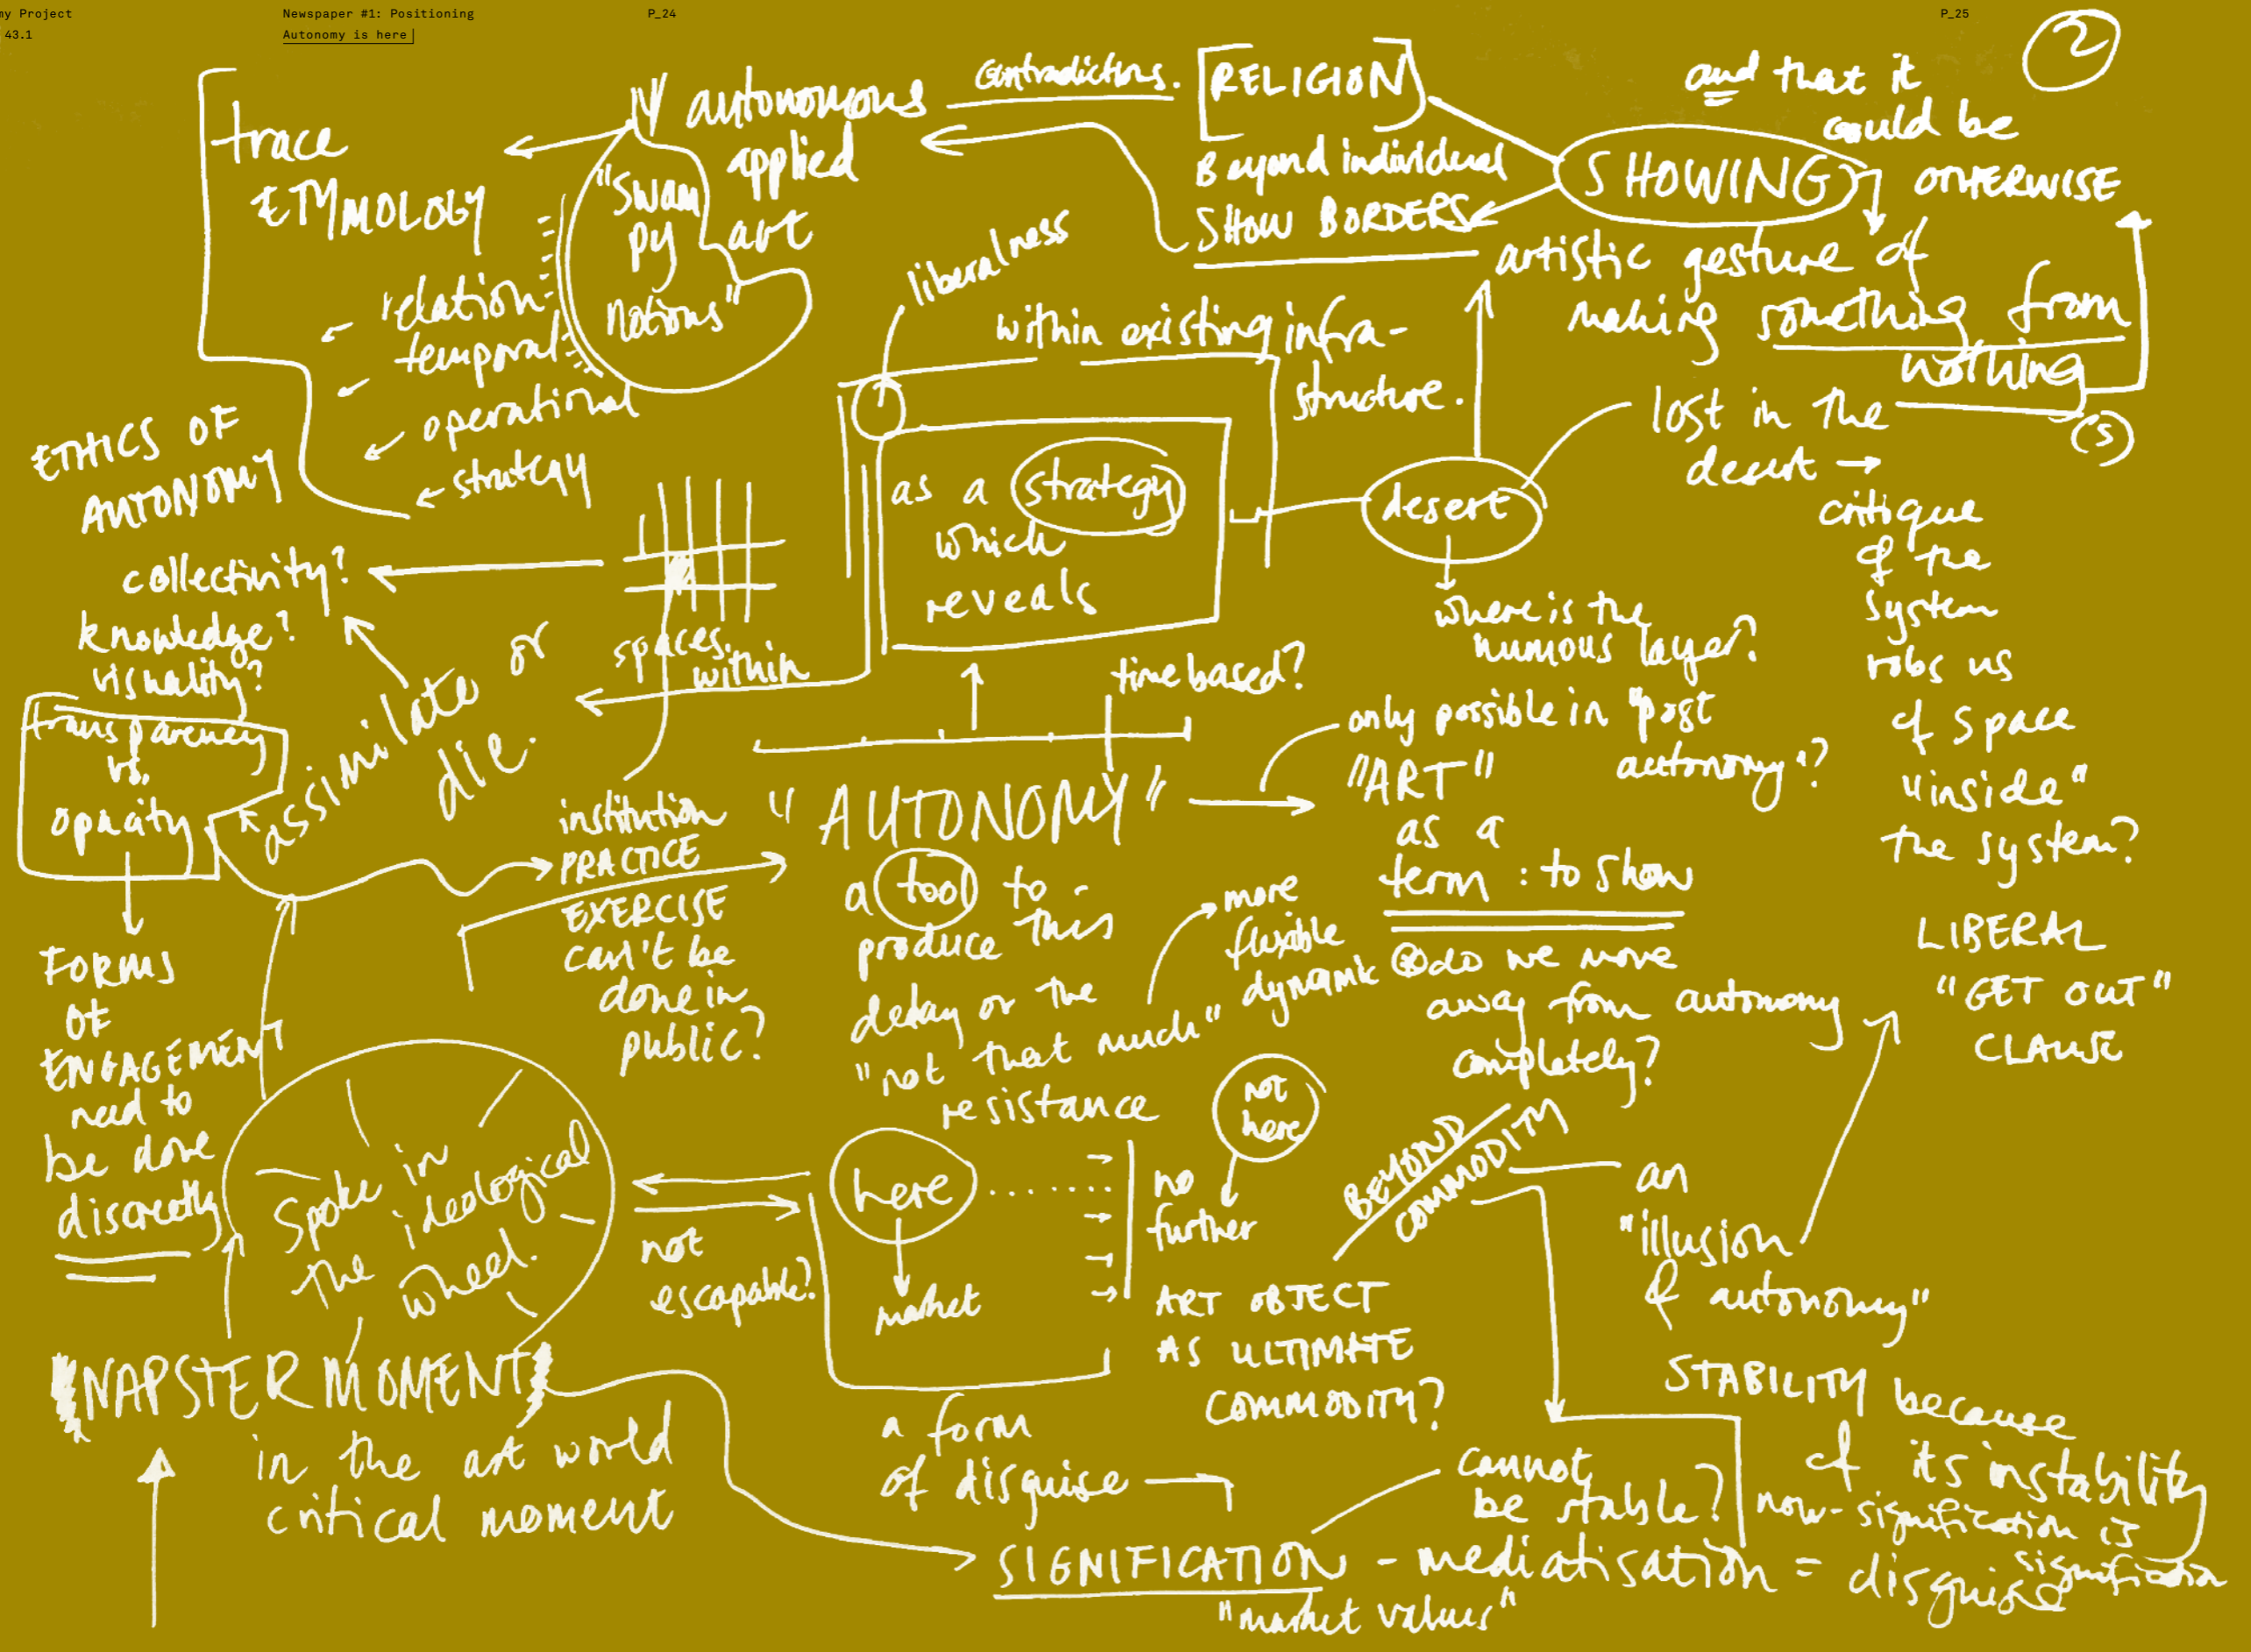 my Project
43.1
Newspaper #1: Positioning
Autonomy is here
P_24
P_25
2
trace
ETYMOLOGY
relation
temporal
operational
strategy
"swam
py
notions"
autonomous
applied
art
contradictions.
[RELIGION]
Beyond individual
SHOW BORDERS
SHOWING
and that it
could be
OTHERWISE
artistic gesture of
making something from
nothing
(s)
liberalness
within existing infra-
structure.
as a strategy
which
reveals
desert
lost in the
desert →
critique
of the
system
robs us
of space
"inside"
the system?
LIBERAL
"GET OUT"
CLAUSE
where is the
numous layer?
ETHICS OF
AUTONOMY
collectivity?
knowledge?
visuality?
transparency
vs.
opacity
assimilate or
die.
spaces
within
time based?
only possible in "post
autonomy"?
"AUTONOMY"
"ART"
as a
term : to show
institution
PRACTICE
EXERCISE
can't be
done in
public?
a tool to
produce this
delay or the
"not that much"
resistance
more
flexible
dynamic
do we move
away from autonomy
completely?
FORMS
OF
ENGAGEMENT
need to
be done
discreetly
Spoke in
the ideological
wheel.
not
escapable?
here
market
not
here
no
further
BEYOND
COMMODITY
an
"illusion
of autonomy"
ART OBJECT
AS ULTIMATE
COMMODITY?
NAPSTER MOMENT
in the art world
critical moment
a form
of disguise
STABILITY because
of its instability
cannot
be stable?
now-signification is
signification
SIGNIFICATION - mediatisation = disguise
"market values"